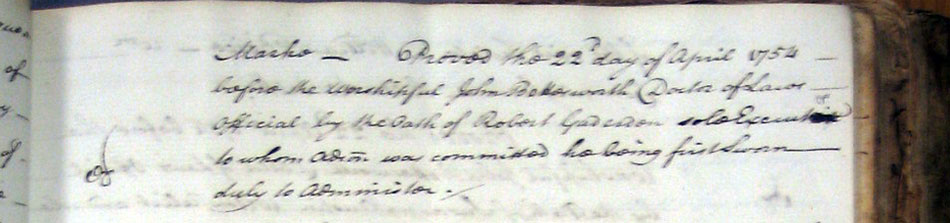 Marke — Proved the 22d day of April 1754 —
before the worshipful John Bettesworth Doctor of Laws —
Official by the Oath of Robert sole Executor
to whom adcon was committed he being first Sworn
duly to Administer.